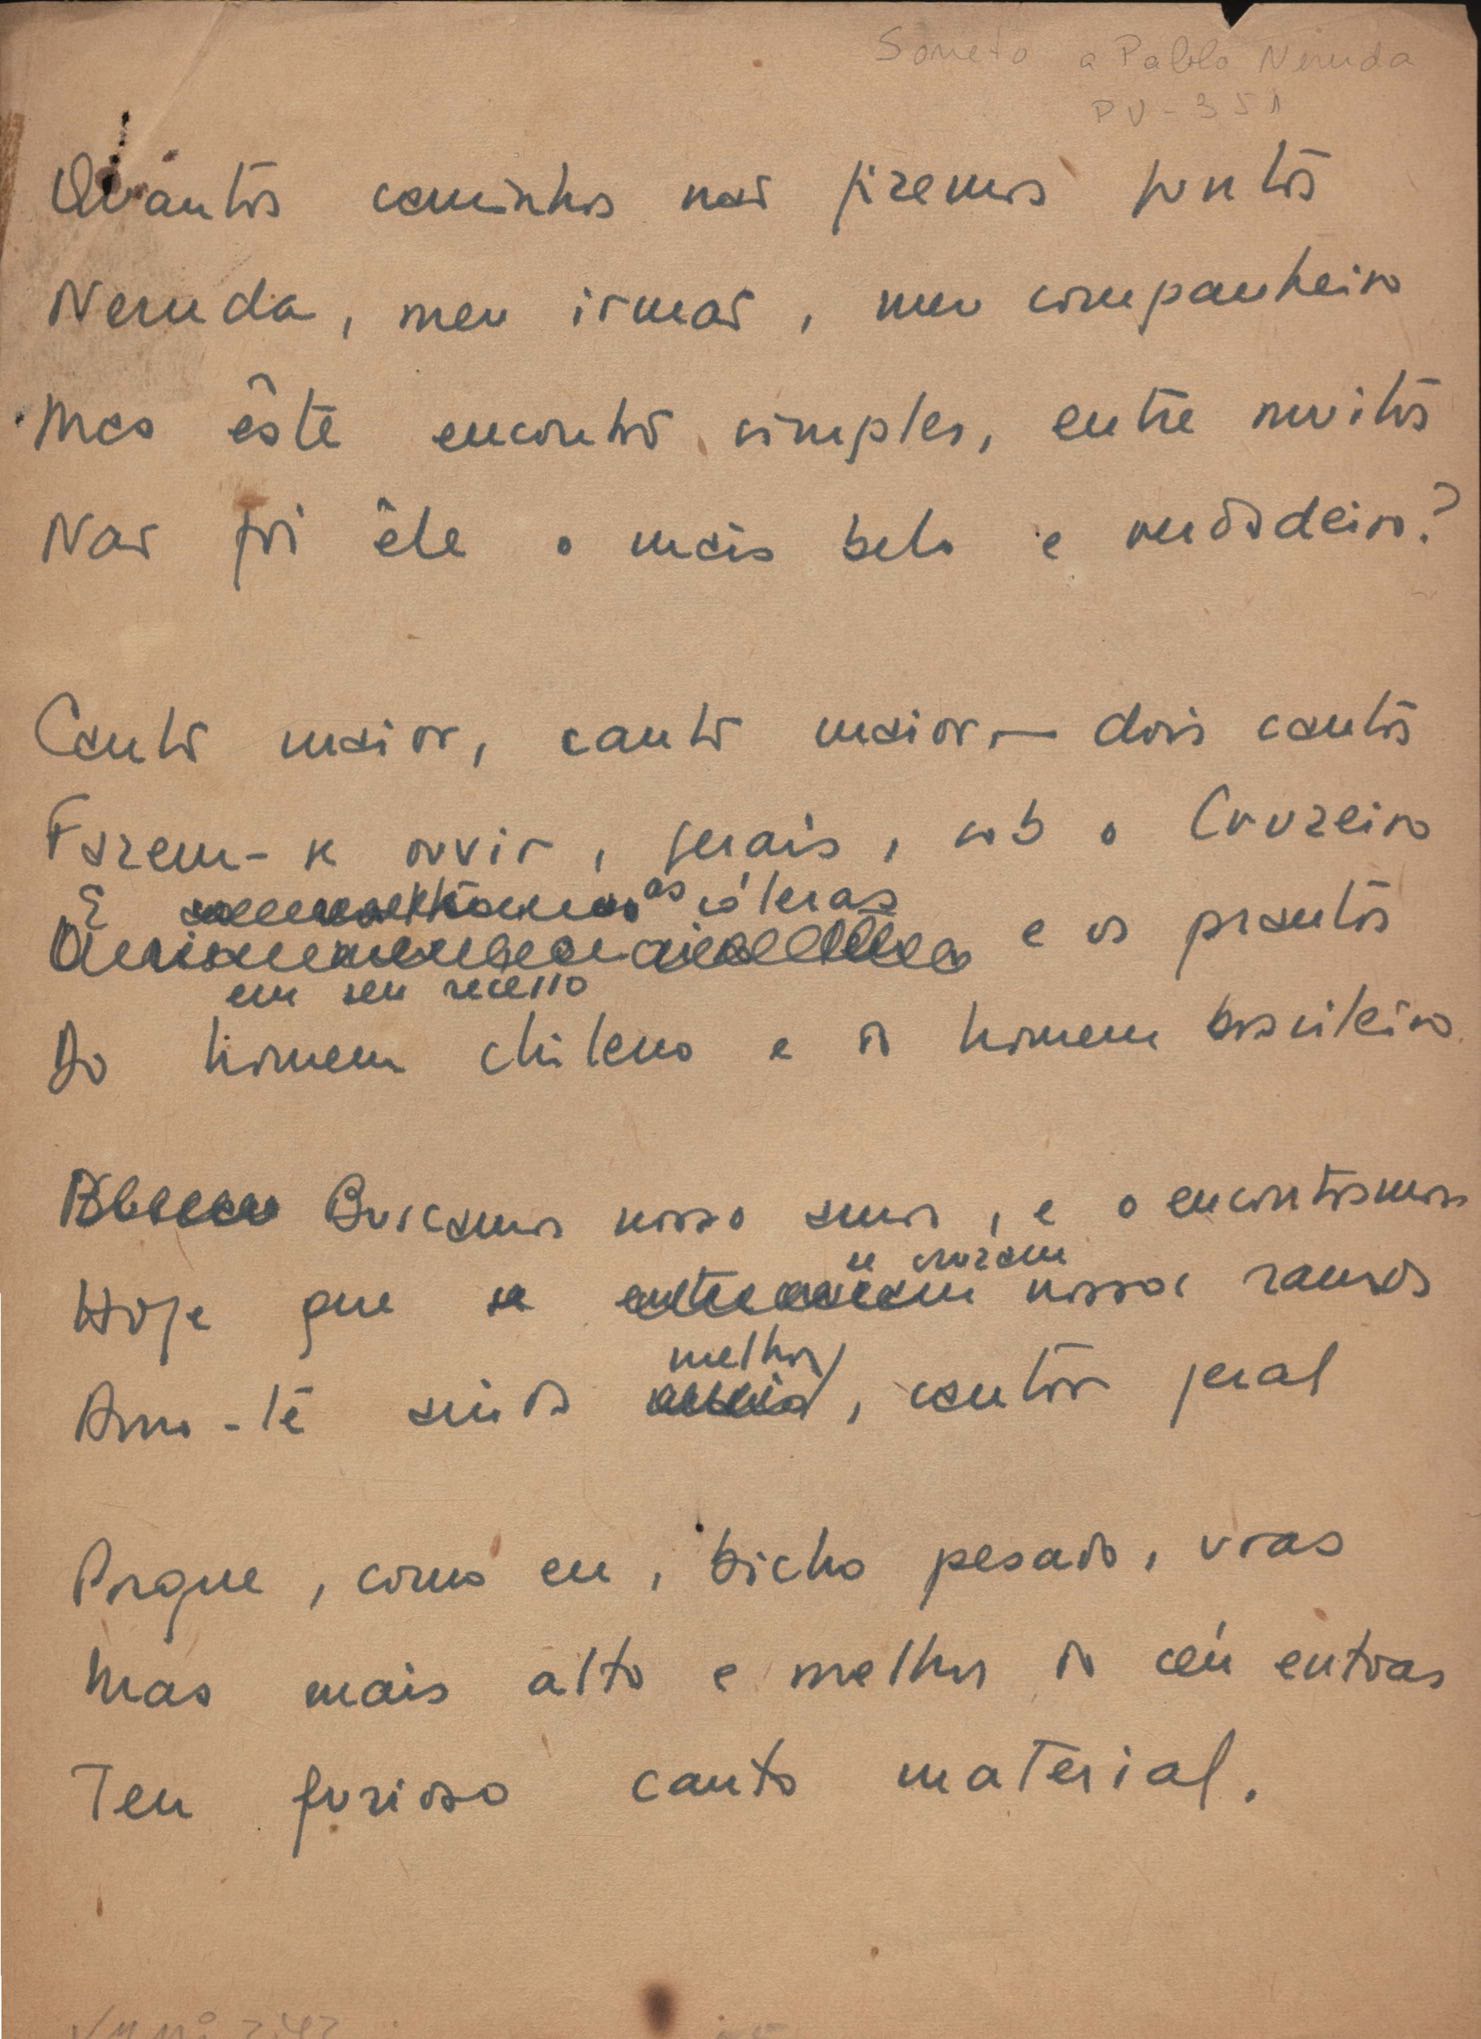 Soneto a Pablo Neruda
PV-351
Quantos caminhos não fizemos juntos
Neruda, meu irmão, meu companheiro
Mas êste encontro simples, entre muitos
Não foi êle o mais belo e verdadeiro?
Canto maior, canto maior — dois cantos
Fazem-se ouvir, gerais, sob o Cruzeiro
E as cóleras
e os prantos
em seu recesso
Do homem chileno e do homem brasileiro.
Buscamos nosso amor, e o encontramos
se cruzam
Hoje que se nossos ramos
melhor
Amo-te ainda, cantor geral
Porque, como eu, bicho pesado, voas
Mas mais alto e melhor do céu entoas
Teu furioso canto material.